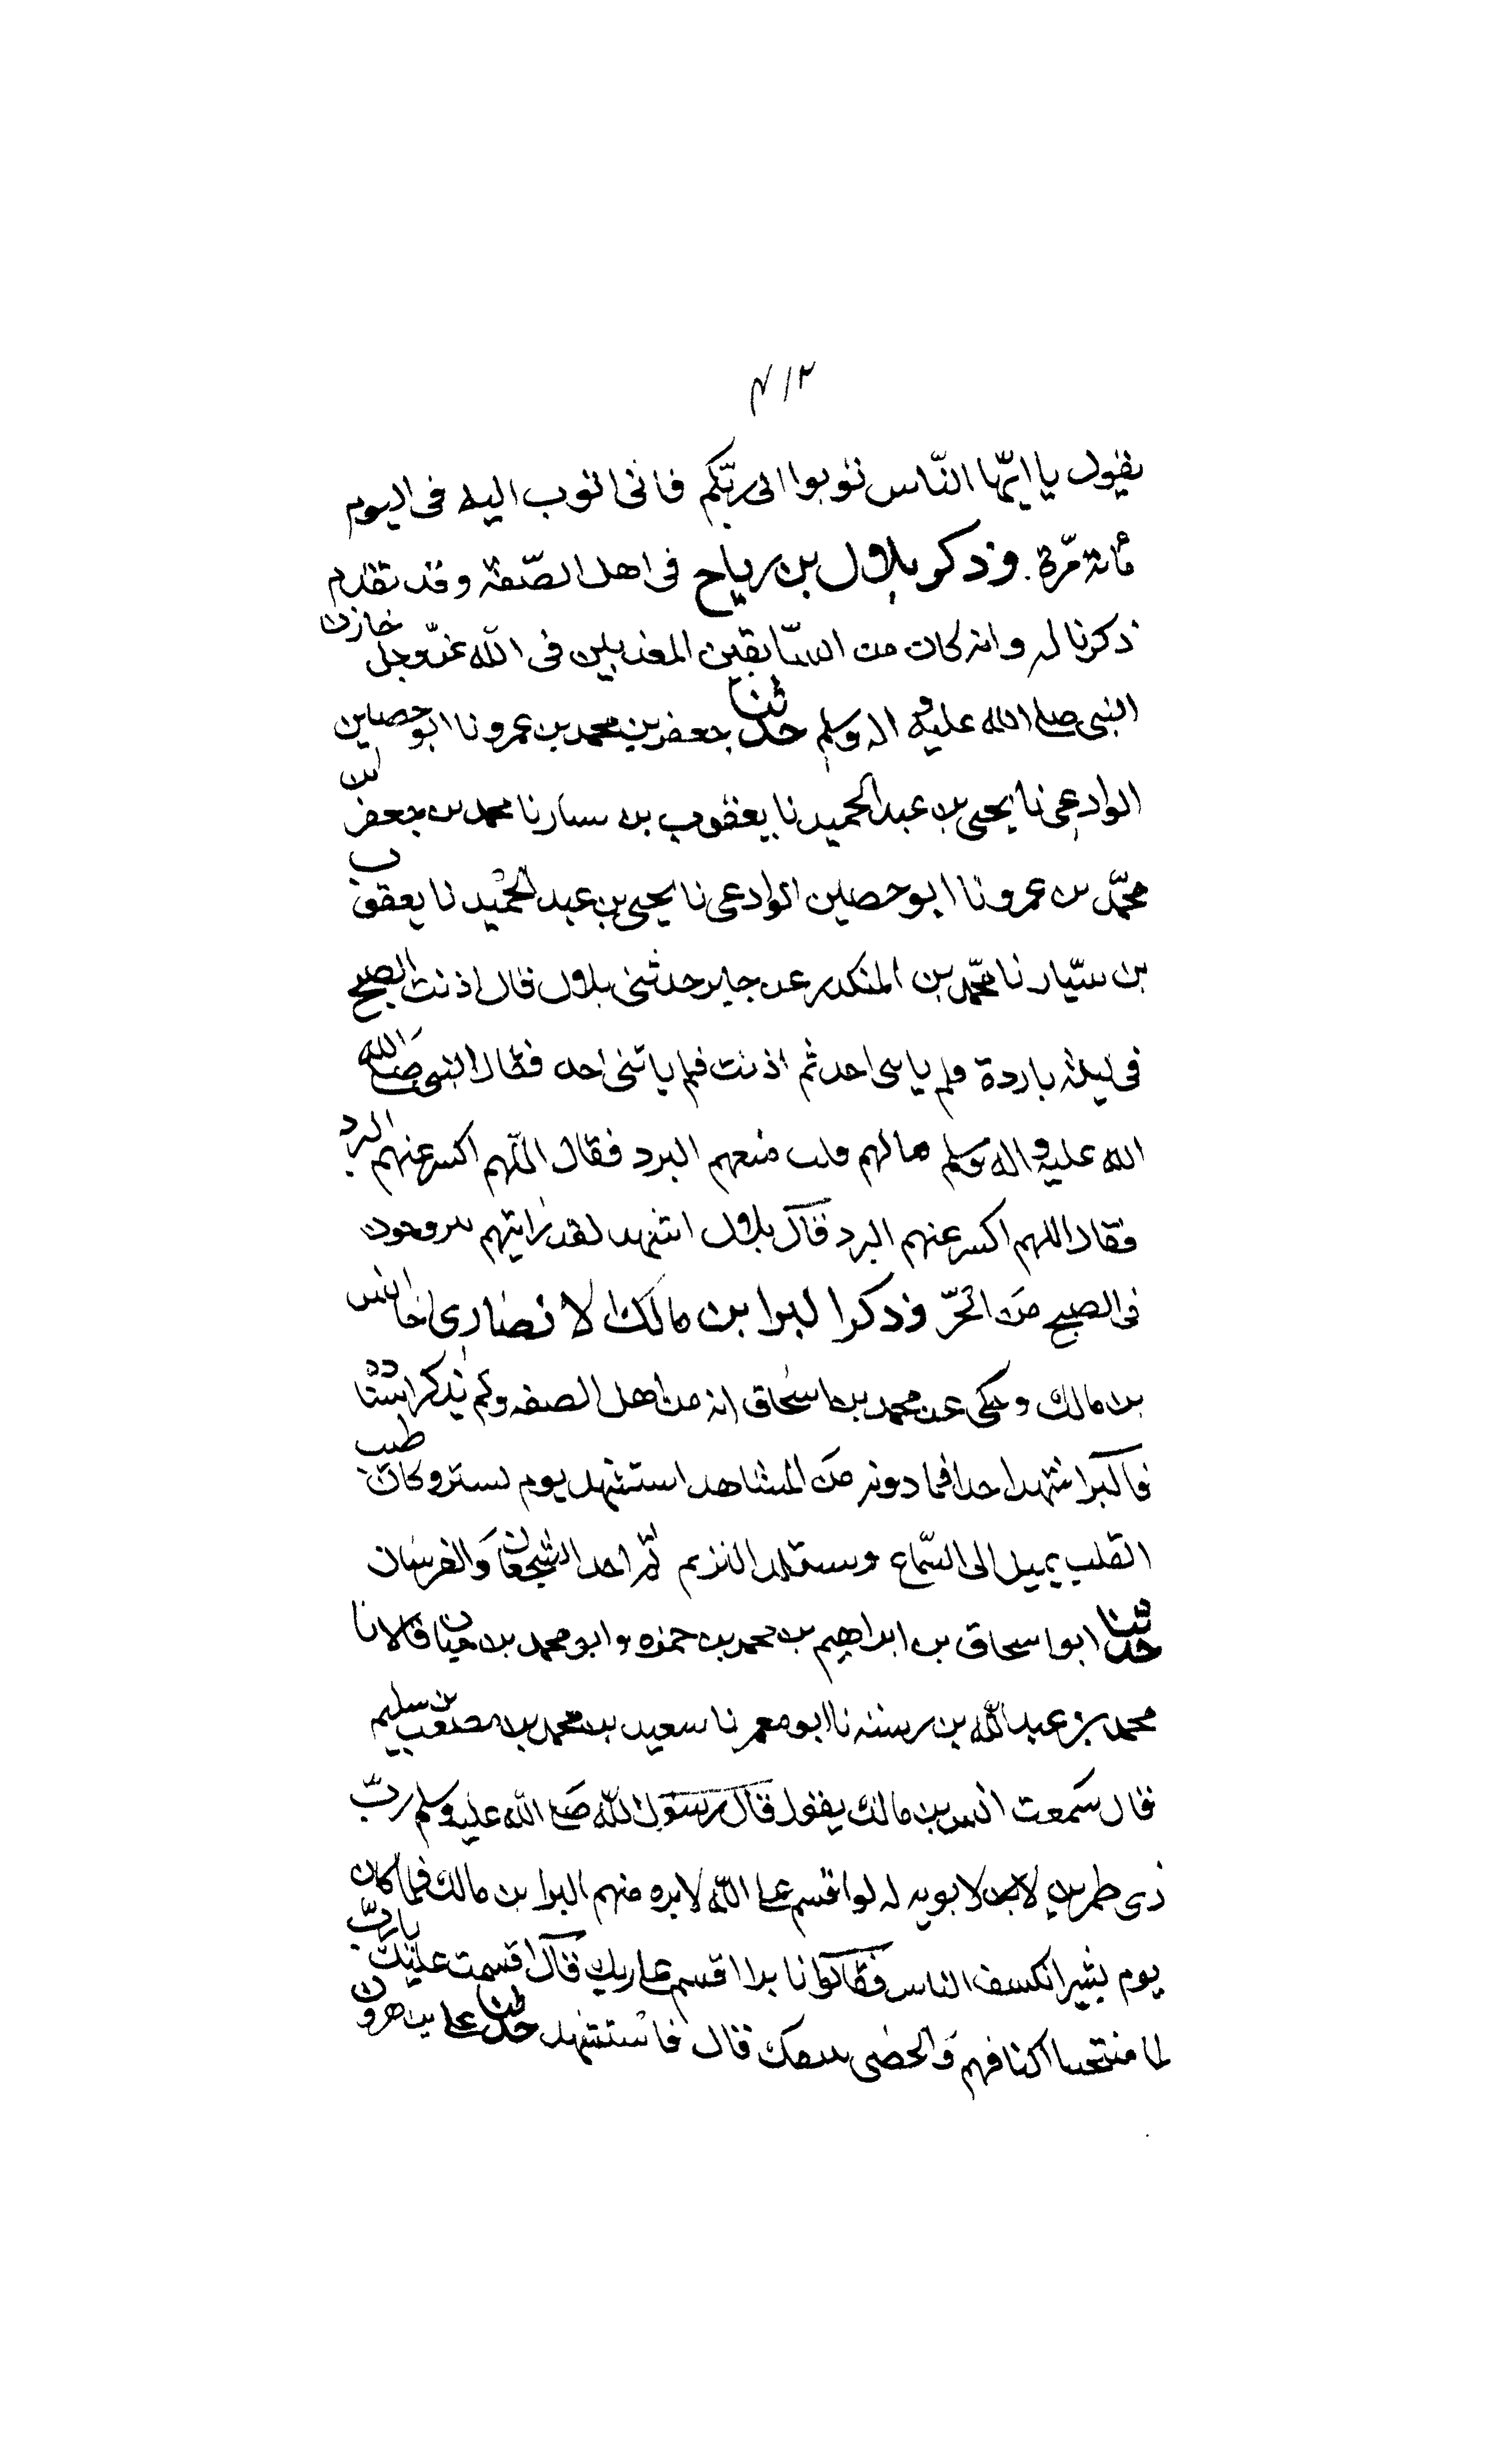 ۴۱۲
يقول يا ايّها النّاس توبوا الى ربّكم فانى اتوب اليه فى اليوم
مأته مّرة. وذكر بلال بن رياح فى اهل الصّفة وقد تقدم
ذكرنا له وانه كان من السّابقين المعذبين فى الله عزّوجل خازن
النبى صلى الله عليه واله وسلم حدثنا جعفر بن محمد بن عمرو نا ابو حصين
الوادعى نا يحيى بن عبد الحميد نا يعقوب بن سار نا محمد بن جعفر بن
محمّد بن عمرو نا ابو حصين الوادعى نا يحيى بن عبد الحميد نا يعقوب
بن سّيار نا محمّد بن المنكدر عن جابر حدثنى بلال قال اذنت الصبح
فى ليلة باردة فلم ياتى احد ثم اذنت فلم ياتنى احد فقال النبى صلى الله
الله عليه واله وسلم مالهم قلت منعهم البرد فقال اللّهم اكسر عنهم البرد
فقال اللهم اكسر عنهم البرد قال بلال اشهد لقد رايتهم يتروحون
فى الصبح من الحرّ وذكر البرا بن مالك لا نصارى اخا انس
بن مالك وحكى عن محمد بن اسحاق انه من اهل الصفه ولم يذكر اسنادہ
فالبرا شهد احدا فما دونه من المشاهد استشهد يوم تستر وكان طيب
القلب يميل الى السّماع ويستلذ الترنم ثم احد الشجعان والفرسان
حدثنا ابو اسحاق بن ابراهيم بن محمد بن حمزه وابو محمد بن حيان قالا نا
محمد بن عبد الله بن رسته نا ابو معمر نا سعيد بن محمد بن مصعب بن سليم
قال سمعت انس بن مالك يقول قال رسول الله صلى الله عليه وسلم ربّ
ذى طمرين لا يوبه له لو اقسم على الله لابره منهم البرا بن مالك فلما كان
يوم انكسف الناس فقالوا نا برا اقسم على ربك قال اقسمت عليك يا ربّ
لما منتحنا اكنافهم والحقنى بنبيك قال فاستشهد حدثنا على بن هرون